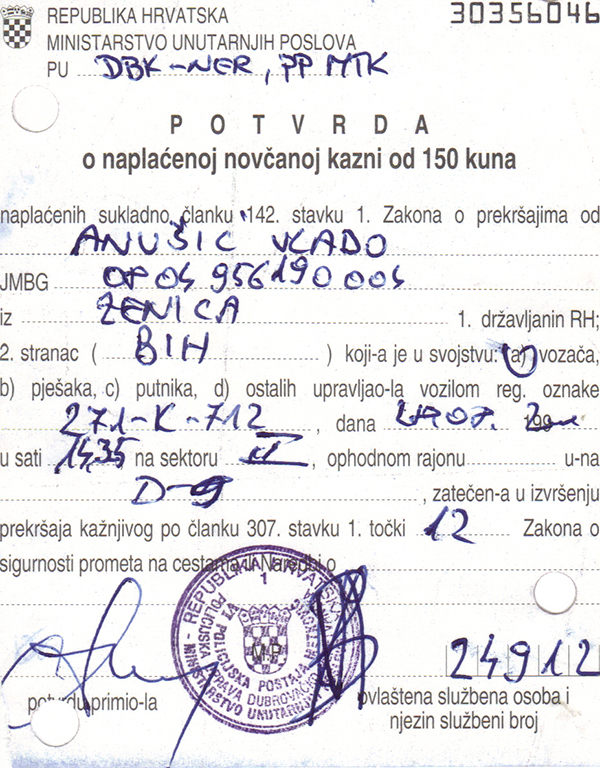 REPUBLIKA HRVATSKA 30356046
MINISTARSTVO UNUTARNJIH POSLOVA
PU DBK-NER, PP MTK
POTVRDA
o naplaćenoj novčanoj kazni od 150 kuna
naplaćenih sukladno članku 142. stavku 1. Zakona o prekršajima od
ANUŠIĆ VLADO
JMBG
iz ZENICA 1. državljanin RH;
2. stranac ( BIH ) koji-a je u svojstvu: (a) vozača,
b) pješaka, c) putnika, d) ostalih upravljao-la vozilom reg. oznake
271-K-712 , dana
u sati 14,35 na sektoru II , ophodnom rajonu u-na
D-9 , zatečen-a u izvršenju
prekršaja kažnjivog po članku 307. stavku 1. točki 12 Zakona o
sigurnosti prometa na cestama ili Naredbi o
REPUBLIKA HRVATSKA
1
MINISTARSTVO UNUTARNJIH
POLICIJSKA UPRAVA DUBROVAČKO
POLICIJSKA POSTAJA
M.P.
24912
potvrdu primio-la ovlaštena službena osoba i
njezin službeni broj